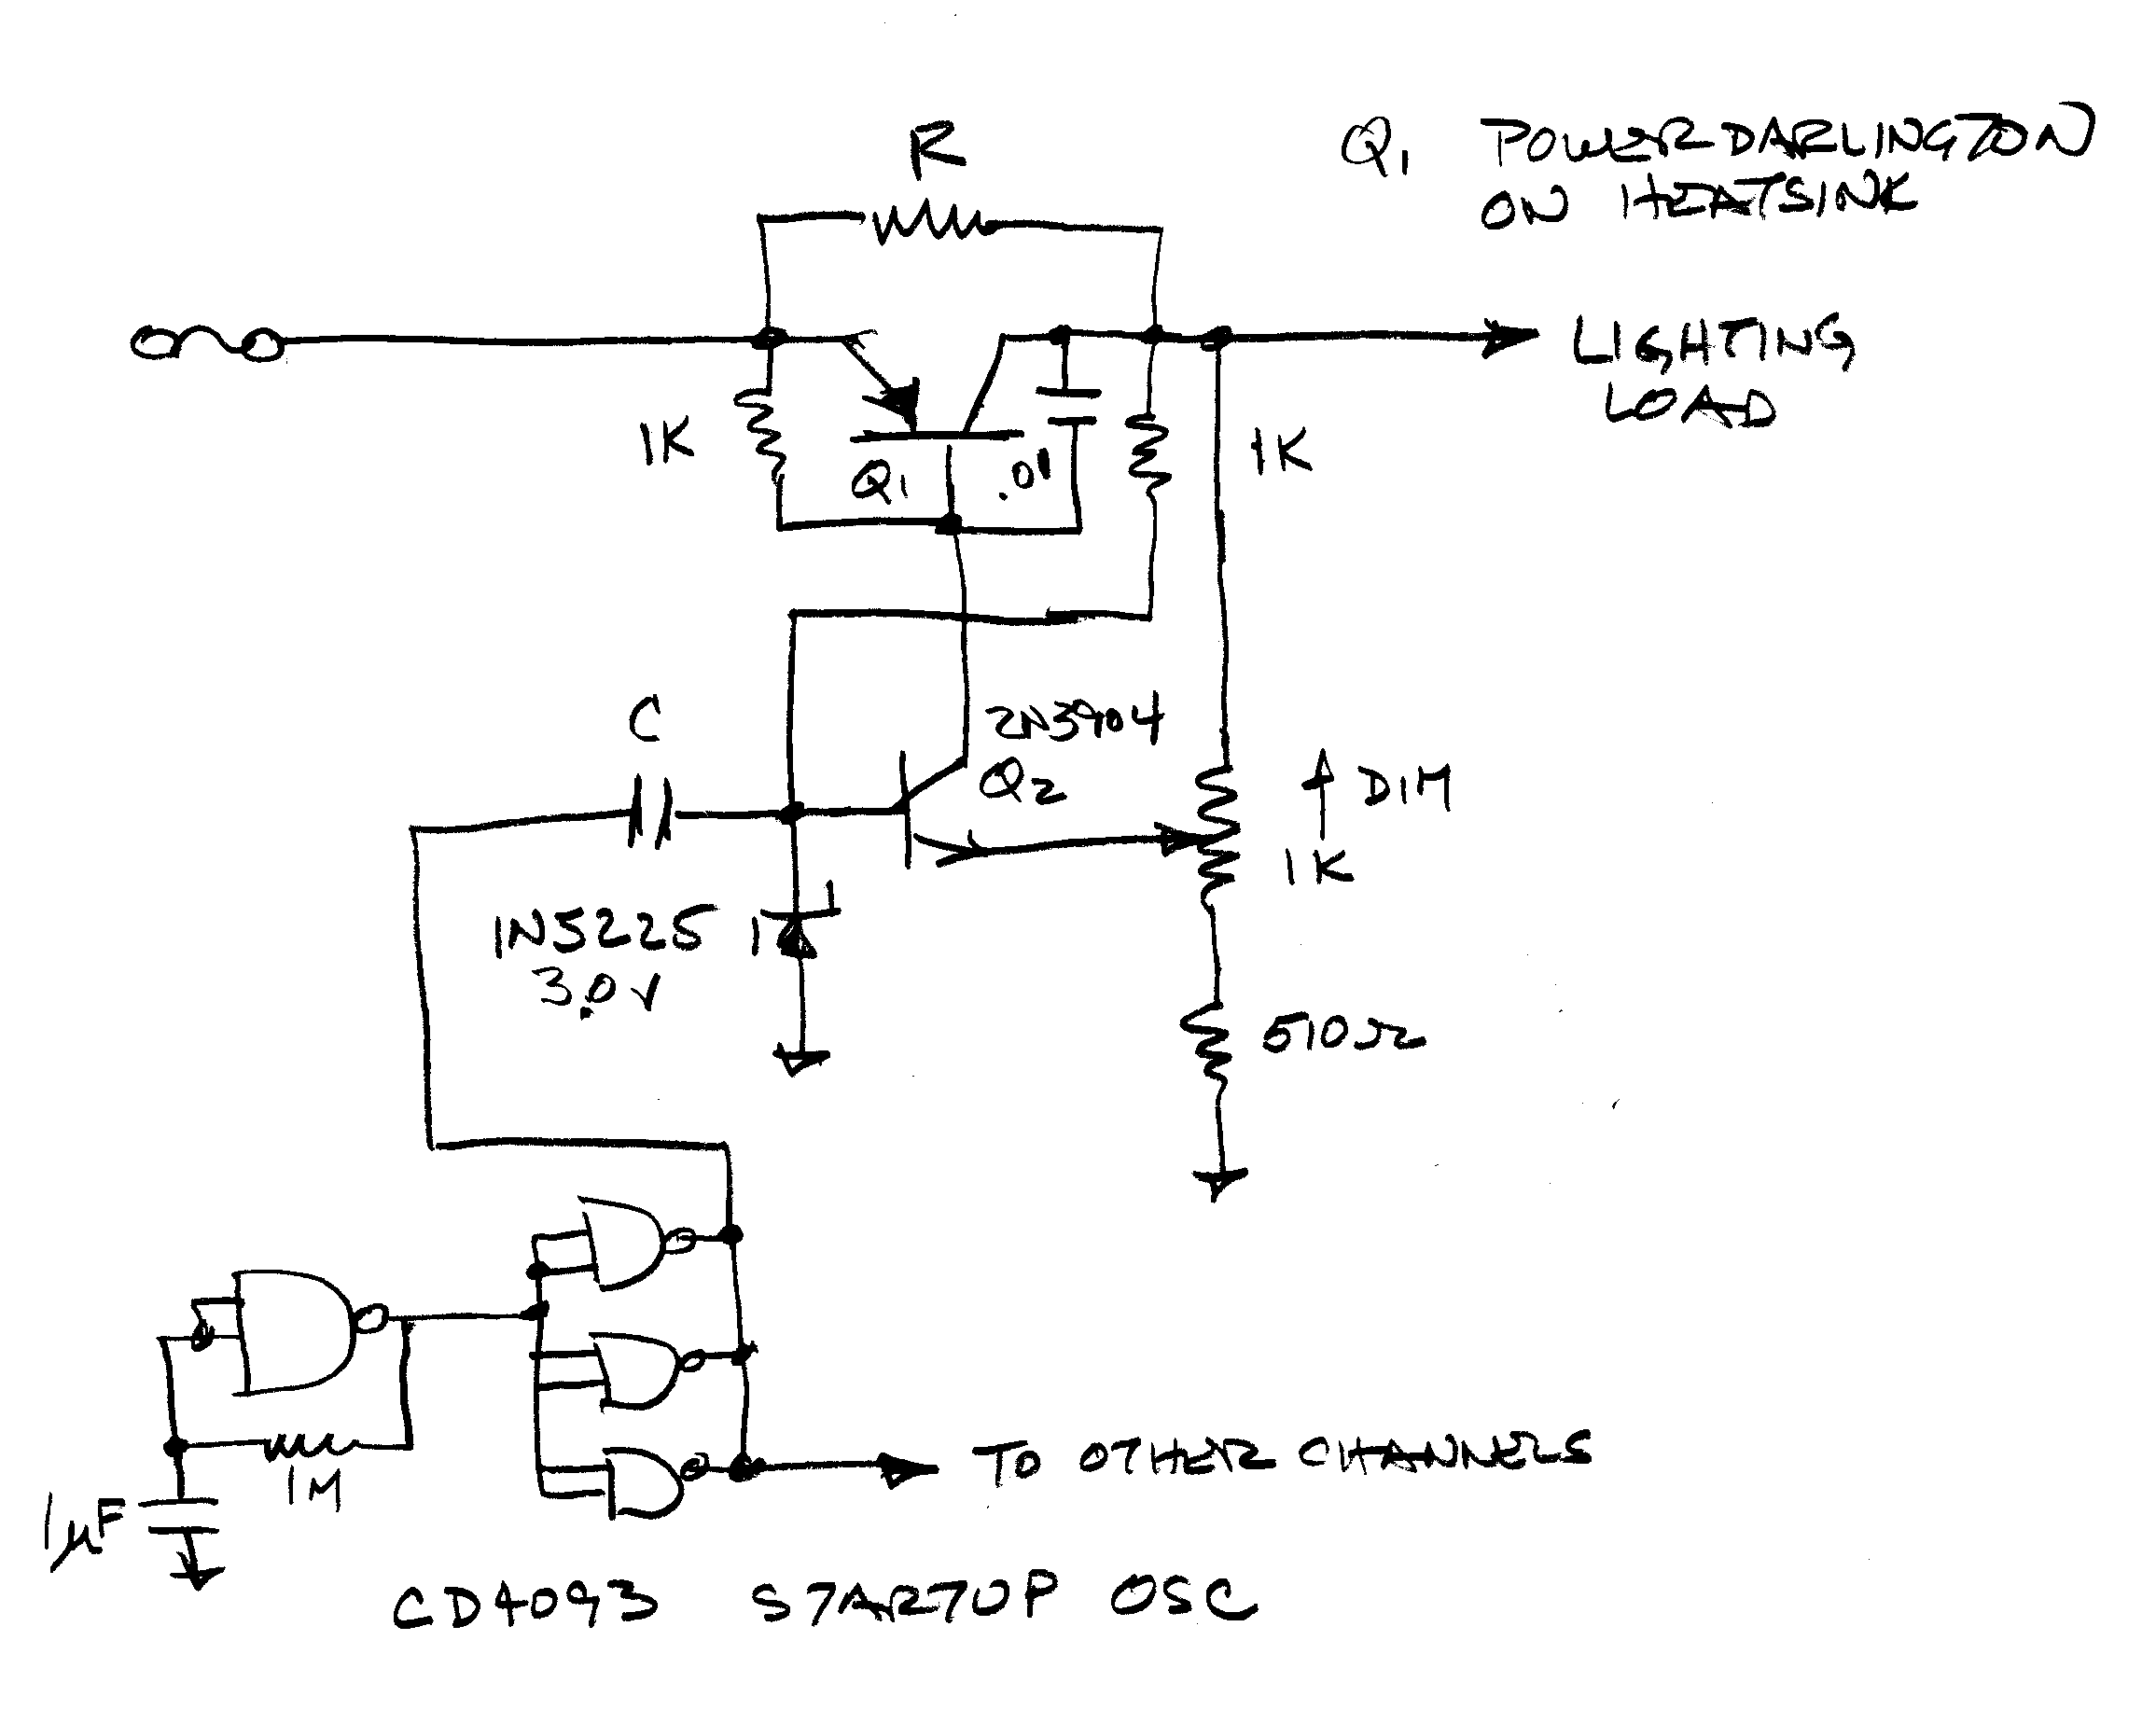 R
Q1 POWER DARLINGTON
ON HEATSINK
LIGHTING
LOAD
1K
Q1
.01
1K
C
2N3904
Q2
↑ DIM
1K
1N5225
3.0V
510Ω
1M
1µF
TO OTHER CHANNELS
CD4093 STARTUP OSC